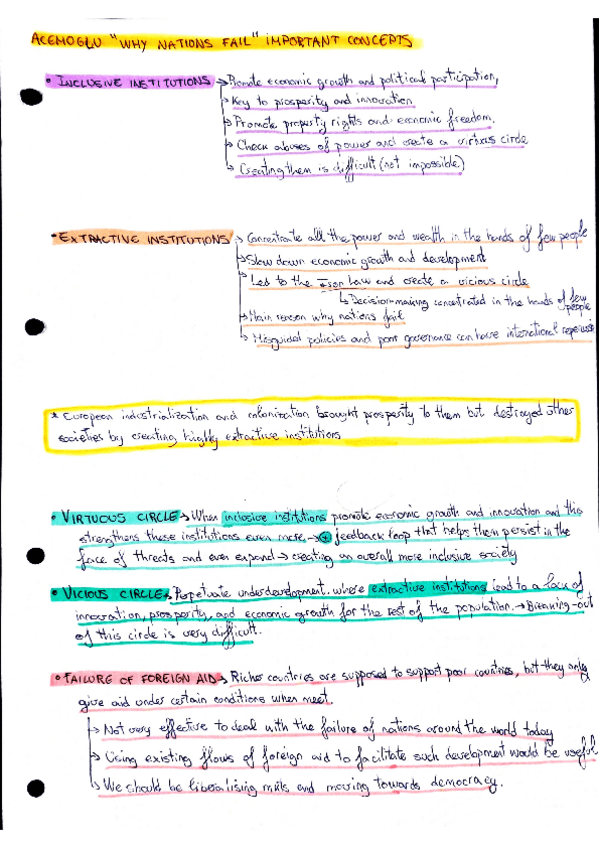 ACEMOGLU "WHY NATIONS FAIL" IMPORTANT CONCEPTS
• INCLUSIVE INSTITUTIONS → Promote economic growth and political participation,
↳ Key to prosperity and innovation
↳ Promote property rights and economic freedom.
↳ Check abuses of power and create a virtous circle
↳ Creating them is difficult (not impossible)
• EXTRACTIVE INSTITUTIONS → Concentrate all the power and wealth in the hands of few people
↳ Slow down economic growth and development
↳ Led to the Iron Law and create a vicious circle
↳ Decision-making concentrated in the hands of few
people
↳ Main reason why nations fail
↳ Misguided policies and poor governance can have international
* European industrialization and colonization brought prosperity to them but destroyed other
societies by creating highly extractive institutions
• VIRTUOUS CIRCLE → When inclusive institutions promote economic growth and innovation and this
strengthens these institutions even more → ⊕ feedback loop that helps them persist in the
face of threats and even expand → creating an overall more inclusive society
• VICIOUS CIRCLE → Perpetuate underdevelopment where extractive institutions lead to a lack of
innovation, prosperity, and economic growth for the rest of the population. → Breaking-out
of this circle is very difficult.
• FAILURE OF FOREIGN AID → Richer countries are supposed to support poor countries, but they only
give aid under certain conditions when meet.
↳ Not very effective to deal with the failure of nations around the world today
↳ Using existing flows of foreign aid to facilitate such development would be useful
↳ We should be liberalising mkts and moving towards democracy.